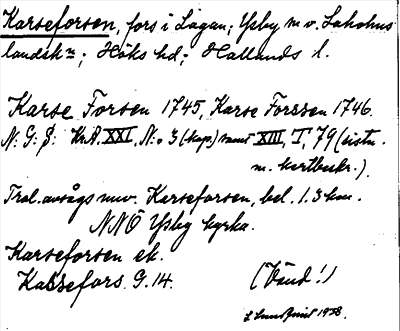 Karseforsen, fors i Lagan; Ysby m v. Laholms
landsk:n; Höks hd; Hallands l.
Karse Forsen 1745, Karse Forssen 1746.
N: G: S: Kr.A. XXI, N:o 3 (kop.) samt XIII, I, 79
m. kartbeskr.).
Trol. avsågs nuv. Karseforsen, bel. 1.3 km.
NNÖ Ysby kyrka.
Karseforsen ek.
Kassefors. G. 14. (Vänd!)
1938.